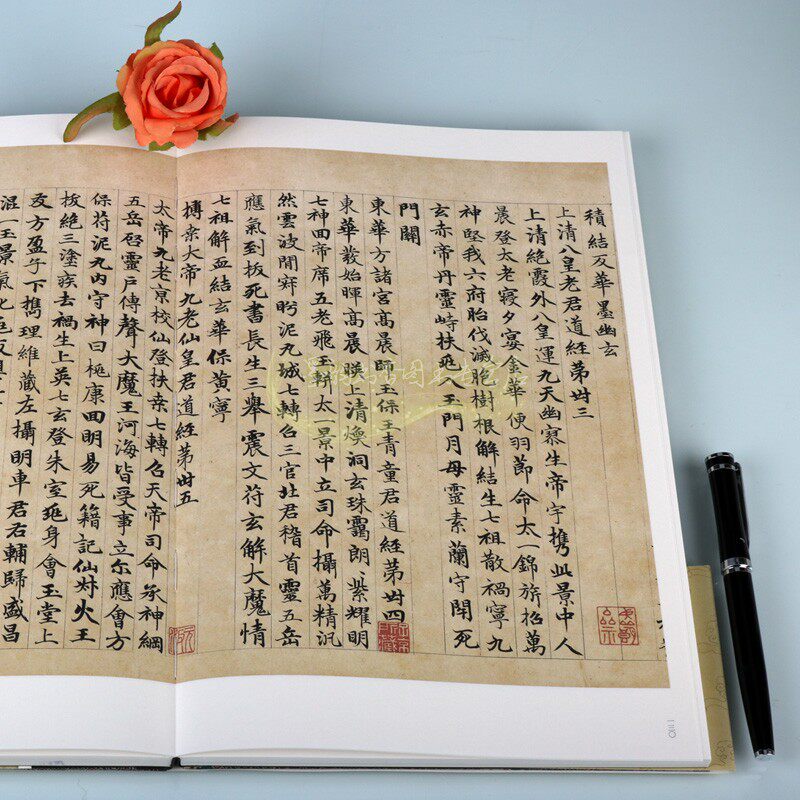 積結反華墨幽玄
上清八皇老君道經第卅三
上清絶霞外八皇運九天幽寮生帝宇携景中人
晨登太老寢夕宴金華便羽節命太一錦旂招萬
神堅我六府胎伐滅胞樹根解結生七祖散禍寧九
玄赤帝丹靈峙扶乘入玉門月母靈素蘭守閇死
門關
東華方諸宮髙晨師玉保王青童君道經第卅四
東華發始暉髙晨暎上清煥洞玄珠靄朗紫耀明
七神回帝席五老飛玉軿太一景中立司命攝萬精汎
然雲波開寂眄泥九城七轉召三官北君稽首靈五岳
應氣到拔死書長生三舉震文符玄解大魔情
七祖解血結玄華保黃寧
搏桒大帝九老仙皇君道經第卅五
太帝九老京校仙登扶桒七轉召天帝司命承神綱
五岳启靈戶傳聲大魔王河海皆受事立尒應會方
保符泥丸内守神曰康回明易死籍記仙火王
拔絶三塗疾去禍生上英七玄登朱室乘身會玉堂上
友方盈乎下携理維藏左攝明車君右輔歸盛昌
混一玉景氣化